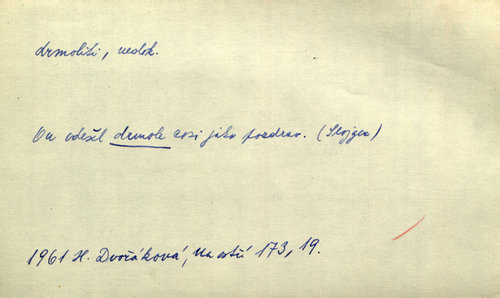 drmoliti, nedok.
On odešel drmole cosi jako pozdrav. (Slojgen)
1961 H. Dvořáková, Na ostří 173, 19.